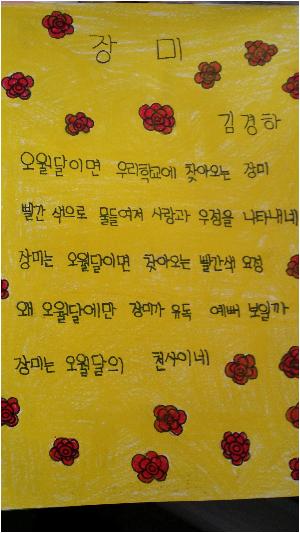 장 미
김경하
오월달이면 우리학교에 찾아오는 장미
빨간 색으로 물들여져 사랑과 우정을 나타내네
장미는 오월달이면 찾아오는 빨간색 요정
왜 오월달에만 장미가 유독 예뻐 보일까
장미는 오월달의 천사이네